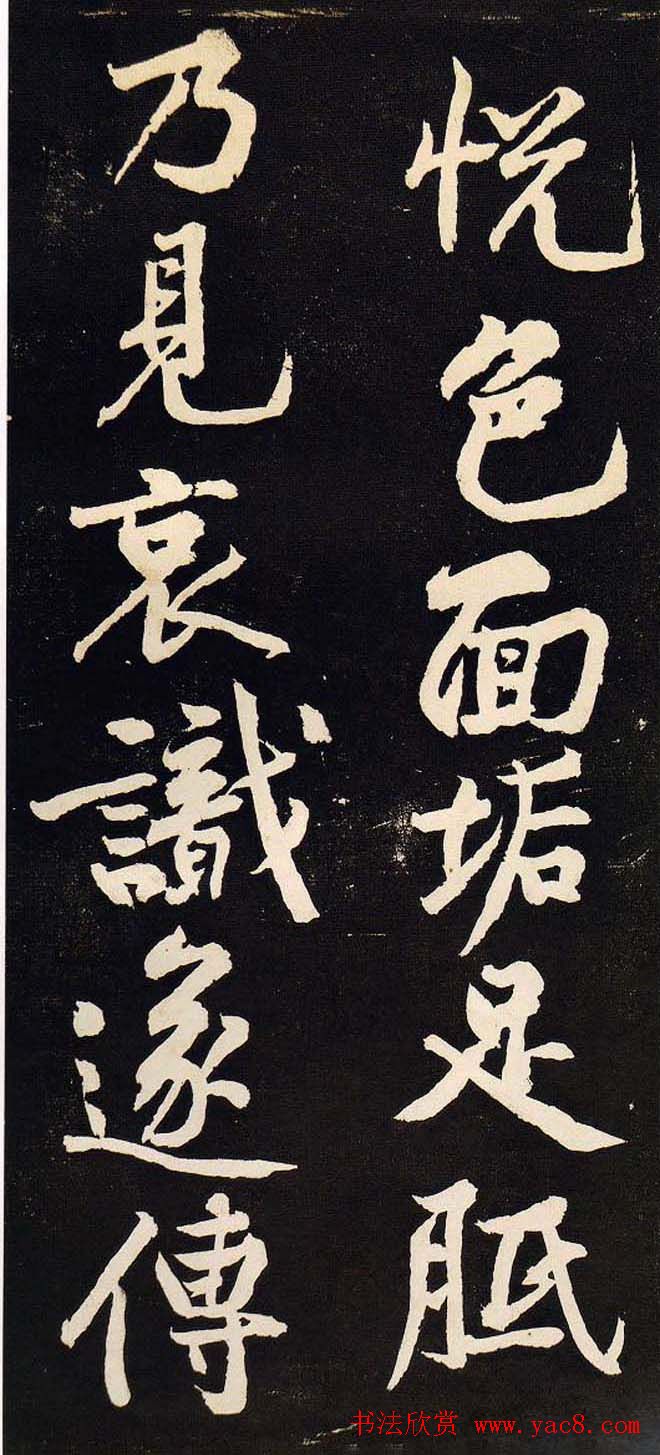 悦色面垢足胝
乃見哀識遂傳
书法欣赏 www.yac8.com